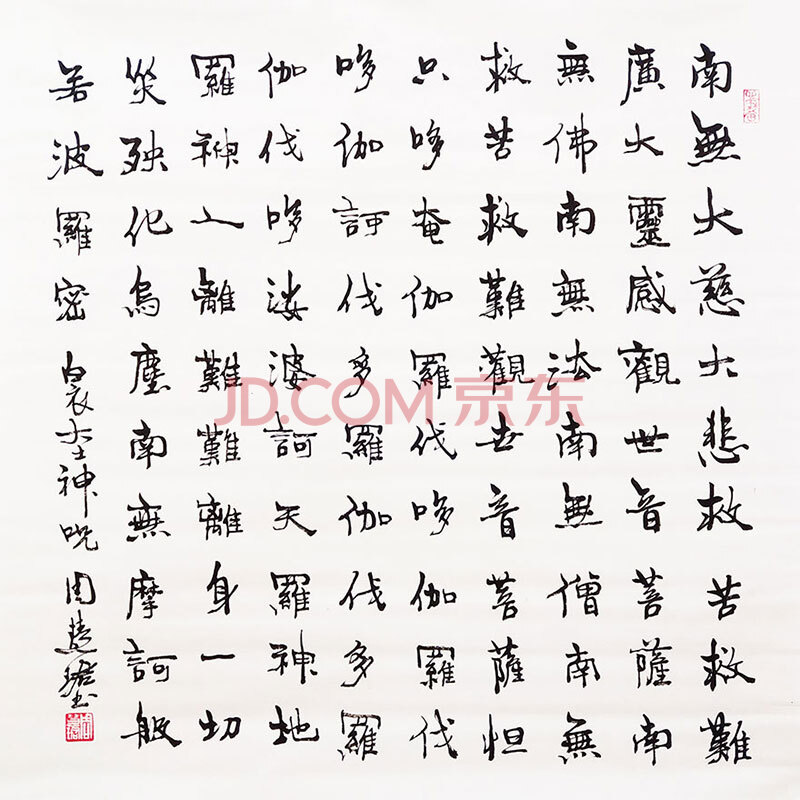 南無大慈大悲救苦救難
廣大靈感觀世音菩薩南
無佛南無法南無僧南無
救苦救難觀世音菩薩怛
只哆奄伽羅伐哆伽羅伐
哆伽訶伐多羅伽伐多羅
伽伐哆娑婆訶天羅神地
羅神人離難難離身一切
災殃化為塵南無摩訶般
若波羅密 白衣大士神咒 周慧珺书
JD.COM 京东